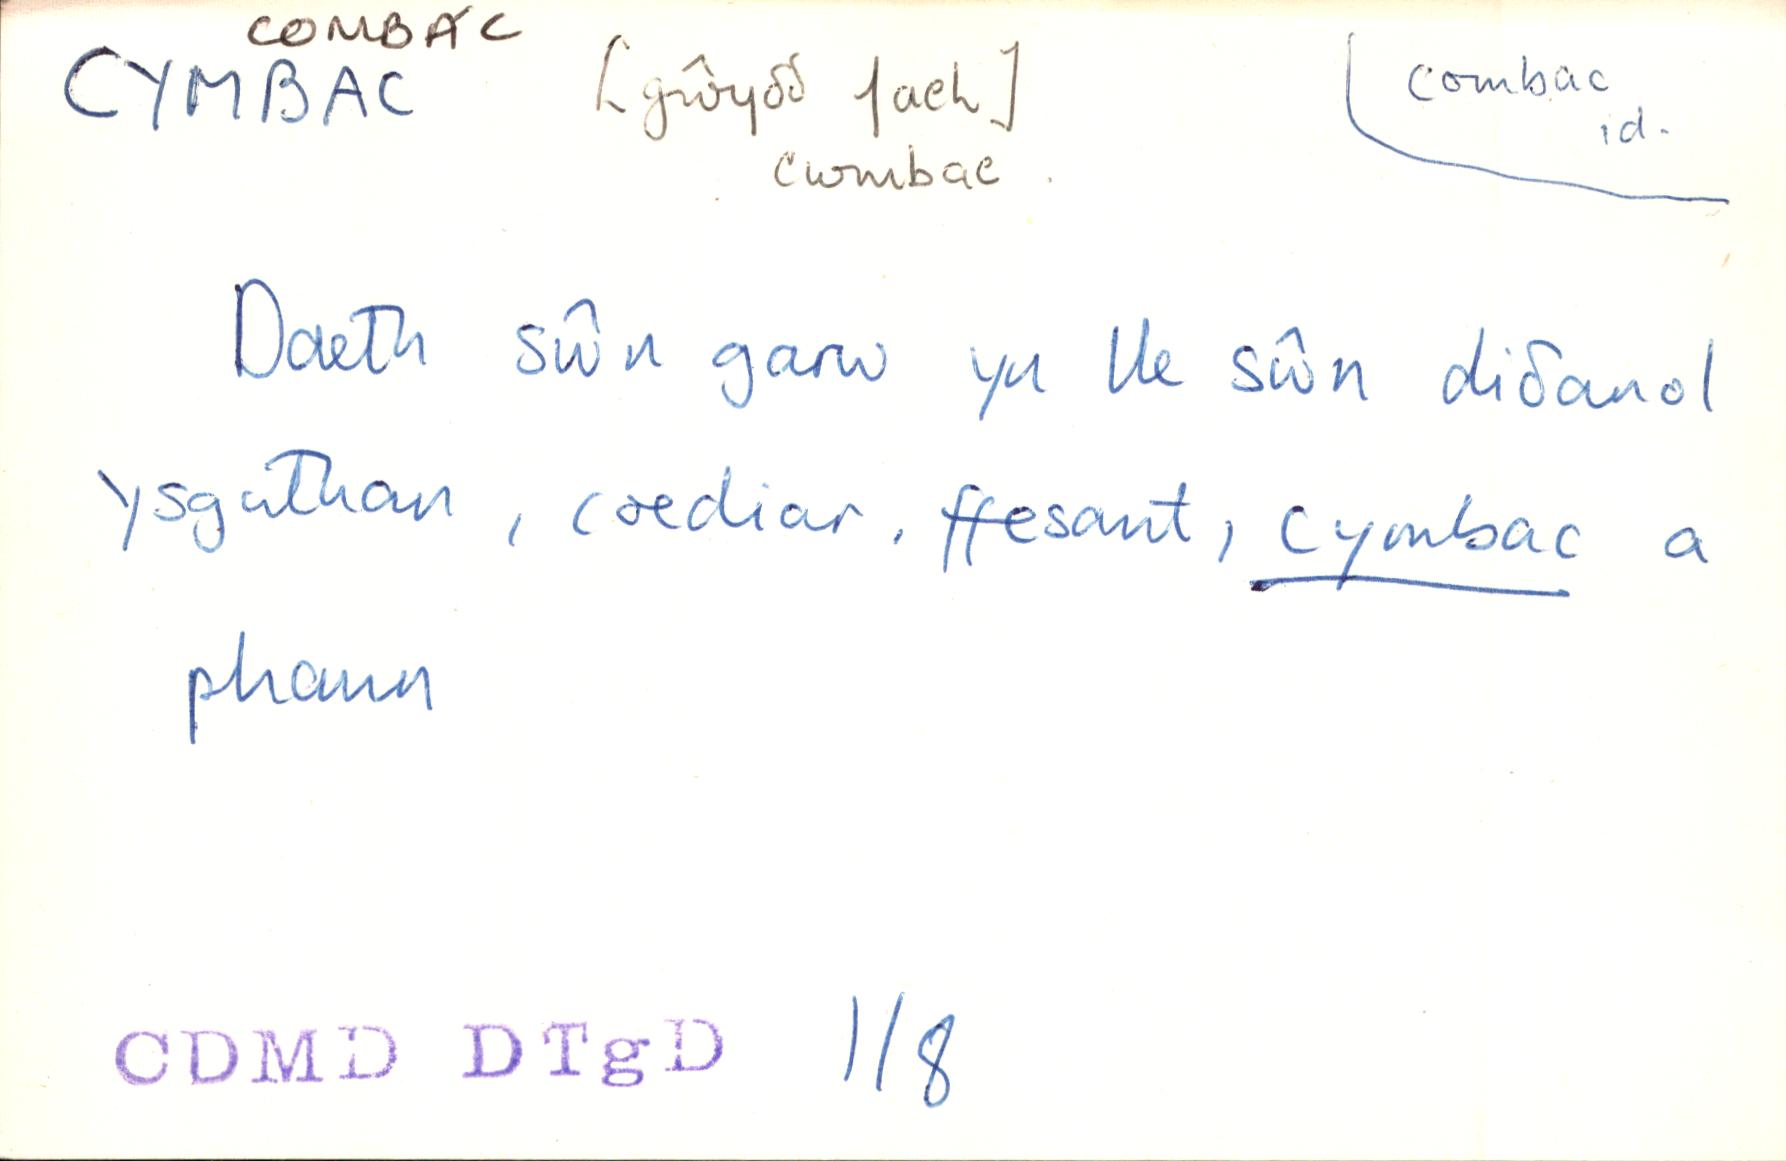 COMBÁC
CYMBAC [gŵyδδ fach] combac
id.
cwmbac.
Daeth sŵn garw yn lle sŵn diδanol
ysguthan, coediar, ffesant, cymbac a
phaun
CDMD DTgD 1/8